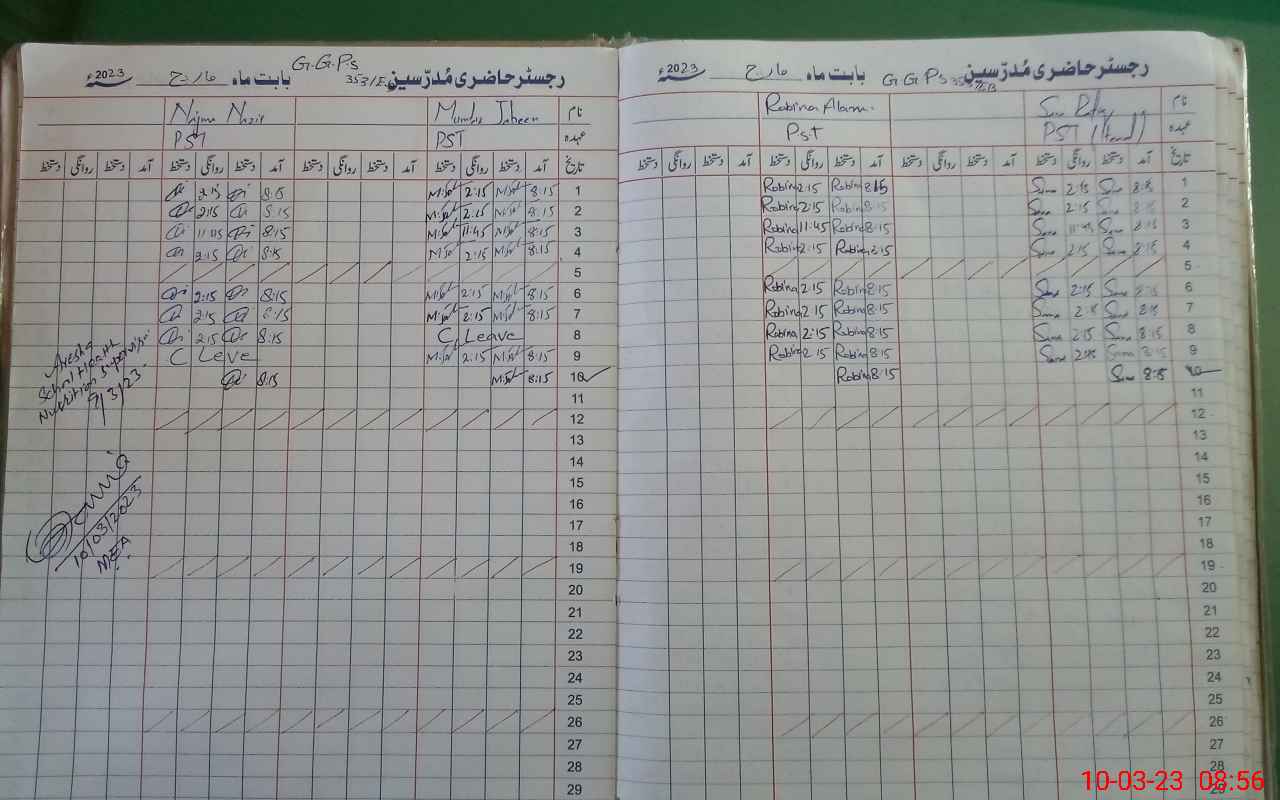 رجسٹر حاضری مُدرّسین G.G.P.S 353/E بابت ماہ مارچ سنہ 2023ء
نام Mumtaz Jabeen Najma Nazir
عہدہ PST PST
تاریخ آمد دستخط روانگی دستخط آمد دستخط روانگی دستخط آمد دستخط روانگی دستخط آمد دستخط روانگی دستخط
1 8:15 2:15 8:15 2:15
2 8:15 2:15 8:15 2:15
3 8:15 11:45 8:15 11:45
4 8:15 2:15 8:15 2:15
5
6 8:15 2:15 8:15 2:15
7 8:15 2:15 8:15 2:15
8 C Leave 8:15 2:15
9 8:15 2:15 C Leve
10 8:15 8:15
11
12
13
14
15
16
17
18
19
20
21
22
23
24
25
26
27
28
29
Ayesha
School Health
Nutrition Supervisor
9/3/23
10/03/2023
MEA
رجسٹر حاضری مُدرّسین G.G.P.S بابت ماہ مارچ سنہ 2023ء
نام Robina Alam
عہدہ PST (Head) Pst
تاریخ آمد دستخط روانگی دستخط آمد دستخط روانگی دستخط آمد دستخط روانگی دستخط آمد دستخط روانگی دستخط
1 8:15 Sana 2:15 Sana 8:15 Robina 2:15 Robina
2 8:15 Sana 2:15 Sana 8:15 Robina 2:15 Robina
3 8:15 Sana 11:45 Sana 8:15 Robina 11:45 Robina
4 8:15 Sana 2:15 Sana 2:15 Robina 2:15 Robina
5
6 8:15 Sana 2:15 Sana 8:15 Robina 2:15 Robina
7 8:15 Sana 2:15 Sana 8:15 Robina 2:15 Robina
8 8:15 Sana 2:15 Sana 8:15 Robina 2:15 Robina
9 8:15 Sana 2:15 Sana 8:15 Robina 2:15 Robina
10 8:15 Sana 8:15 Robina
11
12
13
14
15
16
17
18
19
20
21
22
23
24
25
26
27
28
29
10-03-23 08:56